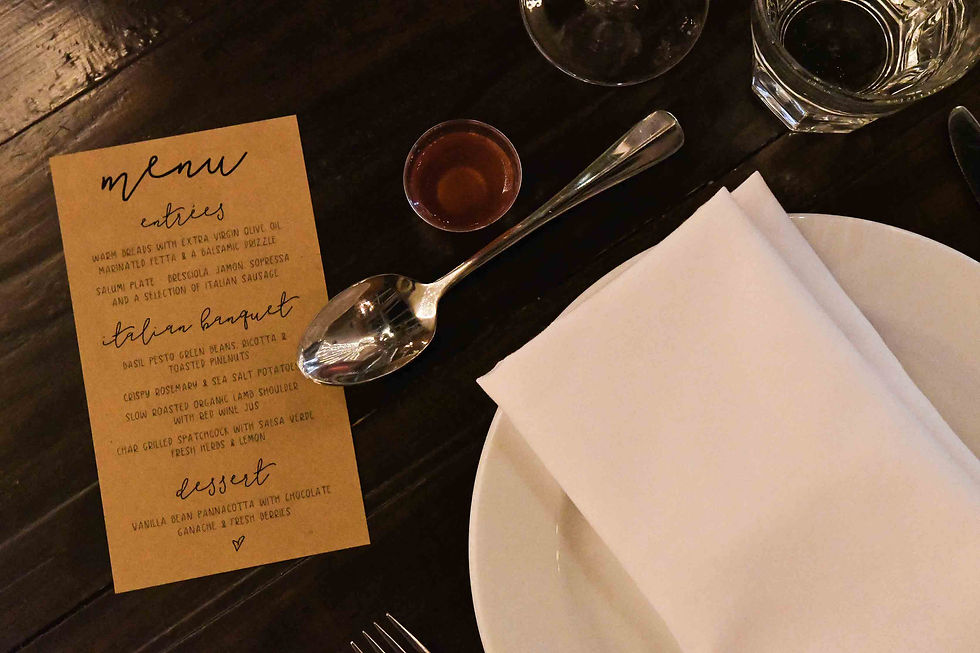 menu
entrées
WARM BREADS WITH EXTRA VIRGIN OLIVE OIL
MARINATED FETTA & A BALSAMIC DRIZZLE
SALUMI PLATE BRESCIOLA, JAMON, SOPRESSA
AND A SELECTION OF ITALIAN SAUSAGE
italian banquet
BASIL PESTO GREEN BEANS, RICOTTA &
TOASTED PINENUTS
CRISPY ROSEMARY & SEA SALT POTATOE
SLOW ROASTED ORGANIC LAMB SHOULDER
WITH RED WINE JUS
CHAR GRILLED SPATCHCOCK WITH SALSA VERDE
FRESH HERBS & LEMON
dessert
VANILLA BEAN PANNACOTTA WITH CHOCOLATE
GANACHE & FRESH BERRIES